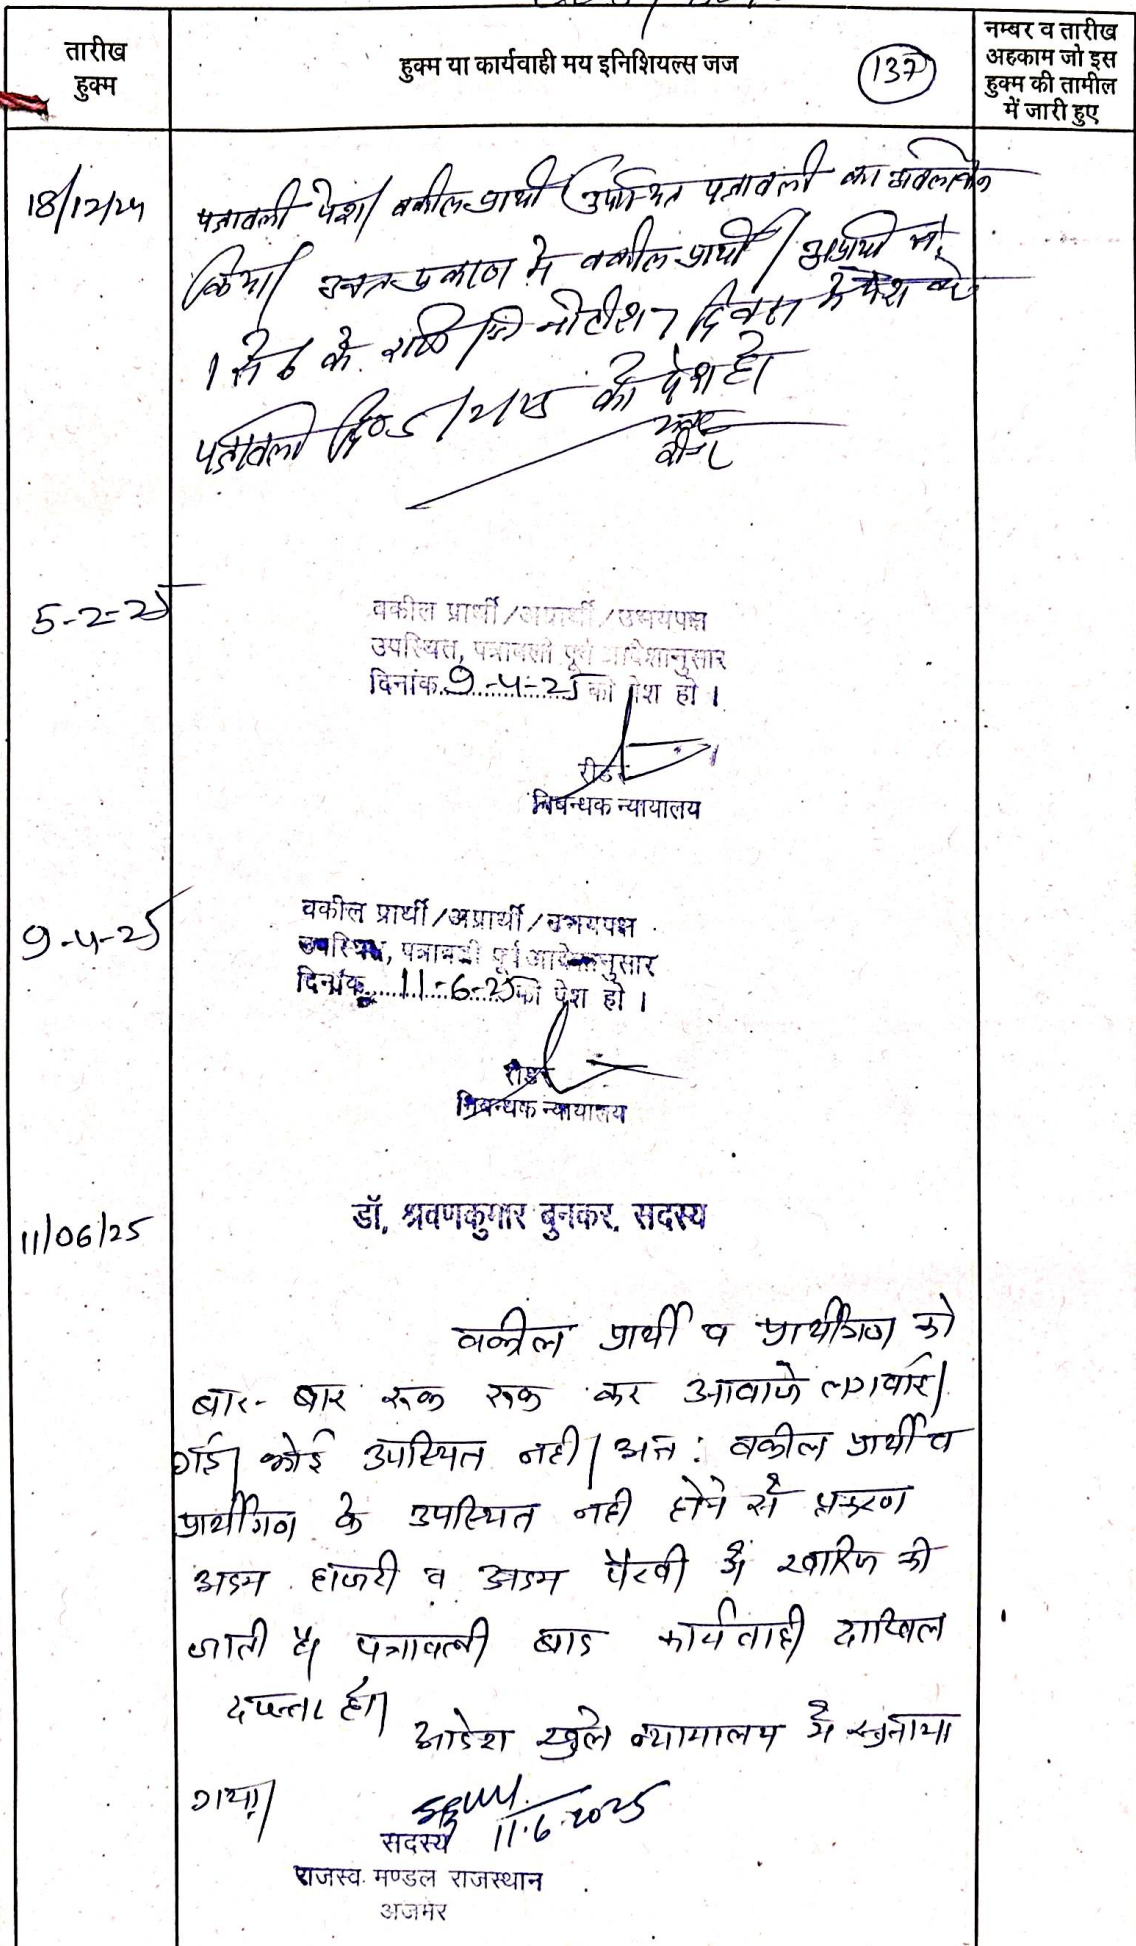 तारीख
हुक्म
हुक्म या कार्यवाही मय इनिशियल्स जज
137
नम्बर व तारीख
अहकाम जो इस
हुक्म की तामील
में जारी हुए
18/12/24
पत्रावली पेश। वकील प्रार्थी उपस्थित पत्रावली का अवलोकन
किया। उक्त प्रकरण में वकील प्रार्थी / अप्रार्थी सं.
1 से 6 के नोटीश 7 दिवस में पेश करे
पत्रावली दि० 5/2/25 को पेश हो।
5-2-25
वकील प्रार्थी/अप्रार्थी/उभयपक्ष
उपस्थित, पत्रावली पूर्व आदेशानुसार
दिनांक 9-4-25 को पेश हो।
रीडर
निबन्धक न्यायालय
9-4-25
वकील प्रार्थी/अप्रार्थी/उभयपक्ष
उपस्थित, पत्रावली पूर्व आदेशानुसार
दिनांक 11-6-25 को पेश हो।
रीडर
निबन्धक न्यायालय
11/06/25
डॉ. श्रवणकुमार बुनकर, सदस्य
वकील प्रार्थी व प्रार्थीगण को
बार-बार रूक रूक कर आवाजे लगवाई
गई। कोई उपस्थित नही। अतः वकील प्रार्थी व
प्रार्थीगण के उपस्थित नही होने से प्रकरण
अदम हाजरी व अदम पैरवी में खारिज की
जाती है। पत्रावली बाद कार्यवाही दाखिल
दफ्तर हो।
आदेश खुले न्यायालय में सुनाया
गया।
11.6.2025
सदस्य
राजस्व मण्डल राजस्थान
अजमेर